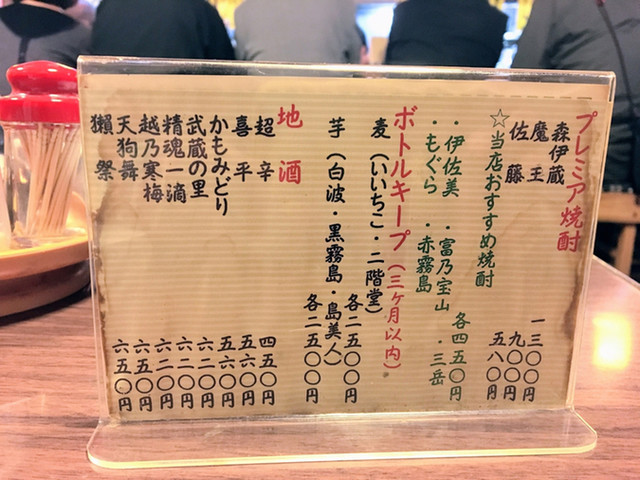 プレミア焼酎
森伊蔵 一三〇〇円
魔王 九〇〇円
佐藤 五八〇円
☆当店おすすめ焼酎
・伊佐美 ・富乃宝山 ・三岳
・もぐら ・赤霧島 各四五〇円
ボトルキープ(三ヶ月以内)
麦(いいちこ・二階堂) 各二五〇〇円
芋(白波・黒霧島・島美人) 各二五〇〇円
地酒
超辛 四五〇円
喜平 五六〇円
かもみどり 五六〇円
武蔵の里 六二〇円
精魂一滴 六二〇円
越乃寒梅 六二〇円
天狗舞 六五〇円
獺祭 六五〇円